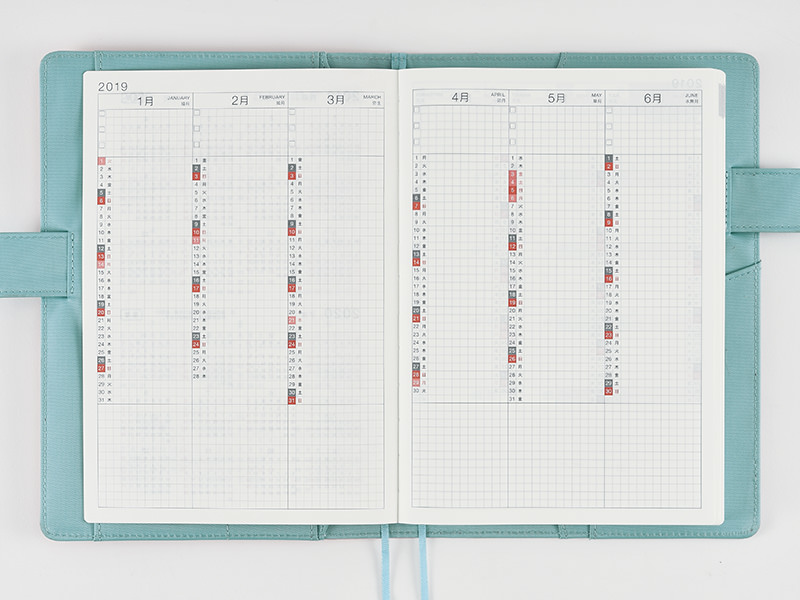 2019
1月 JANUARY 2月 FEBRUARY 3月 MARCH
1 火 1 金 1 金
2 水 2 土 2 土
3 木 3 日 3 日
4 金 4 月 4 月
5 土 5 火 5 火
6 日 6 水 6 水
7 月 7 木 7 木
8 火 8 金 8 金
9 水 9 土 9 土
10 木 10 日 10 日
11 金 11 月 11 月
12 土 12 火 12 火
13 日 13 水 13 水
14 月 14 木 14 木
15 火 15 金 15 金
16 水 16 土 16 土
17 木 17 日 17 日
18 金 18 月 18 月
19 土 19 火 19 火
20 日 20 水 20 水
21 月 21 木 21 木
22 火 22 金 22 金
23 水 23 土 23 土
24 木 24 日 24 日
25 金 25 月 25 月
26 土 26 火 26 火
27 日 27 水 27 水
28 月 28 木 28 木
29 火 29 金
30 水 30 土
31 木 31 日
4月 APRIL 5月 MAY 6月 JUNE
1 月 1 水 1 土
2 火 2 木 2 日
3 水 3 金 3 月
4 木 4 土 4 火
5 金 5 日 5 水
6 土 6 月 6 木
7 日 7 火 7 金
8 月 8 水 8 土
9 火 9 木 9 日
10 水 10 金 10 月
11 木 11 土 11 火
12 金 12 日 12 水
13 土 13 月 13 木
14 日 14 火 14 金
15 月 15 水 15 土
16 火 16 木 16 日
17 水 17 金 17 月
18 木 18 土 18 火
19 金 19 日 19 水
20 土 20 月 20 木
21 日 21 火 21 金
22 月 22 水 22 土
23 火 23 木 23 日
24 水 24 金 24 月
25 木 25 土 25 火
26 金 26 日 26 水
27 土 27 月 27 木
28 日 28 火 28 金
29 月 29 水 29 土
30 火 30 木 30 日
31 金